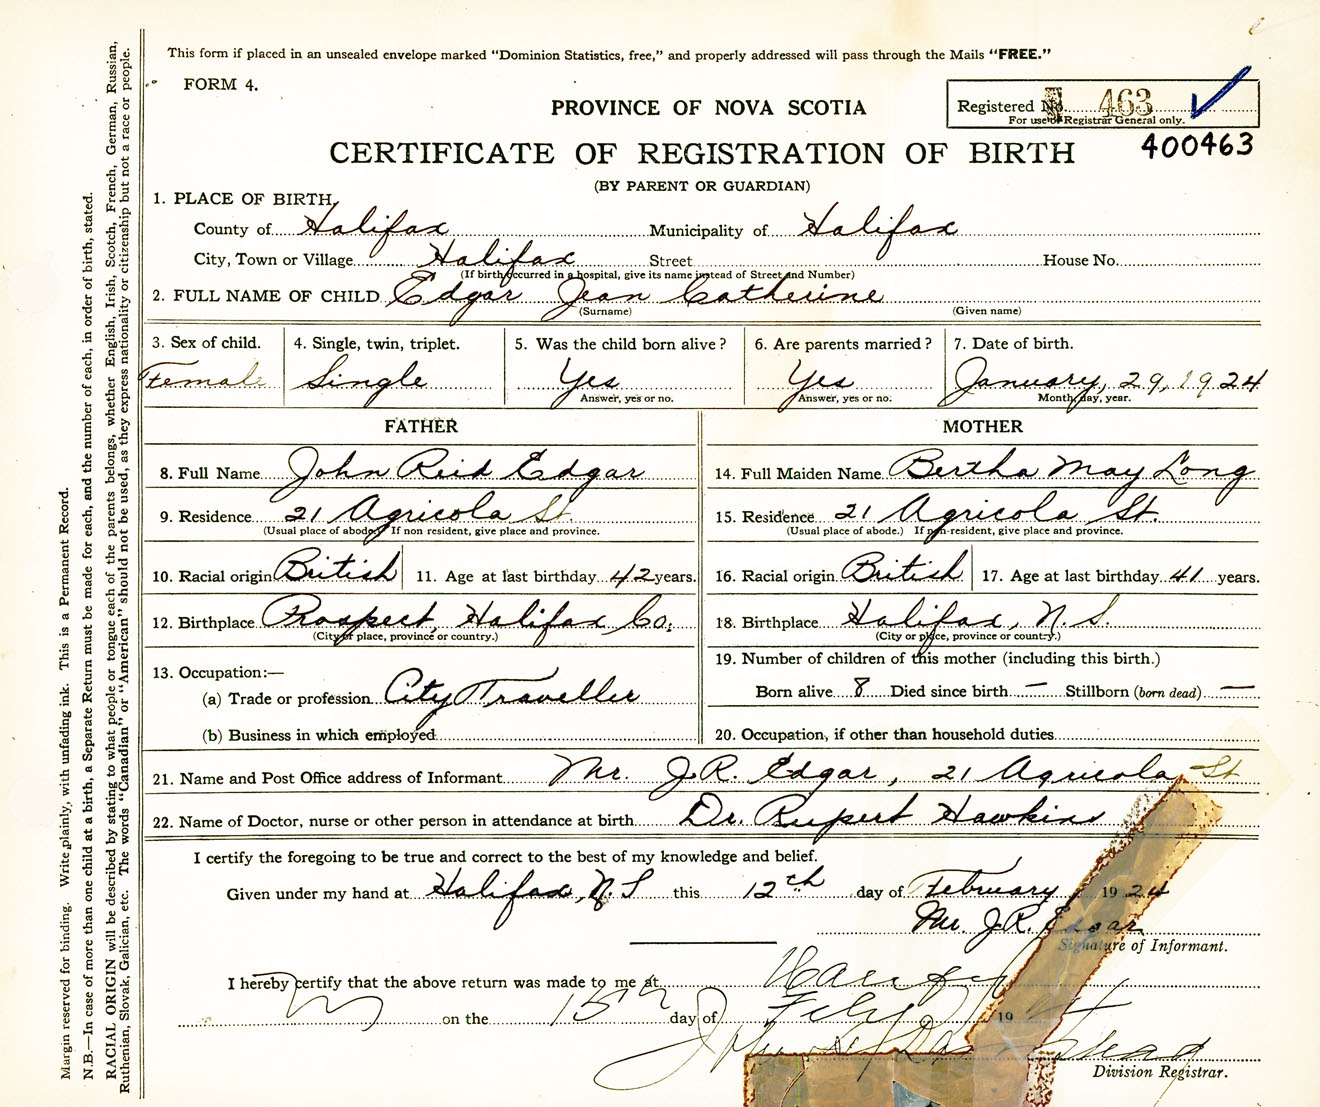 This form if placed in an unsealed envelope marked "Dominion Statistics, free," and properly addressed will pass through the Mails "FREE."
FORM 4.
Registered No. 463
For use of Registrar General only.
PROVINCE OF NOVA SCOTIA
400463
CERTIFICATE OF REGISTRATION OF BIRTH
(BY PARENT OR GUARDIAN)
1. PLACE OF BIRTH,
County of Halifax Municipality of Halifax
City, Town or Village Halifax Street House No.
(If birth occurred in a hospital, give its name instead of Street and Number)
2. FULL NAME OF CHILD Edgar Jean Catherine
(Surname) (Given name)
3. Sex of child. 4. Single, twin, triplet. 5. Was the child born alive? 6. Are parents married? 7. Date of birth.
Female Single Yes Yes January, 29, 1924
Answer, yes or no. Answer, yes or no. Month, day, year.
FATHER MOTHER
8. Full Name John Reid Edgar 14. Full Maiden Name Bertha May Long
9. Residence 21 Agricola St. 15. Residence 21 Agricola St.
(Usual place of abode.) If non resident, give place and province. (Usual place of abode.) If non-resident, give place and province.
10. Racial origin British 11. Age at last birthday 42 years. 16. Racial origin British 17. Age at last birthday 41 years.
12. Birthplace Prospect, Halifax Co. 18. Birthplace Halifax, N.S.
(City or place, province or country.) (City or place, province or country.)
13. Occupation:— 19. Number of children of this mother (including this birth.)
(a) Trade or profession City Traveller Born alive 8 Died since birth — Stillborn (born dead) —
(b) Business in which employed 20. Occupation, if other than household duties
21. Name and Post Office address of Informant Mr. J.R. Edgar, 21 Agricola St
22. Name of Doctor, nurse or other person in attendance at birth Dr. Rupert Hawkins
I certify the foregoing to be true and correct to the best of my knowledge and belief.
Given under my hand at Halifax, N.S this 12th day of February 1924
Mr. J.R. Edgar
Signature of Informant.
I hereby certify that the above return was made to me at
on the 15th day of Feby 19
Division Registrar.
Margin reserved for binding. Write plainly, with unfading ink. This is a Permanent Record.
N.B.—In case of more than one child at a birth, a Separate Return must be made for each, and the number of each, in order of birth, stated.
RACIAL ORIGIN will be described by stating to what people or tongue each of the parents belongs, whether English, Irish, Scotch, French, German, Russian,
Ruthenian, Slovak, Galician, etc. The words "Canadian" or "American" should not be used, as they express nationality or citizenship but not a race or people.